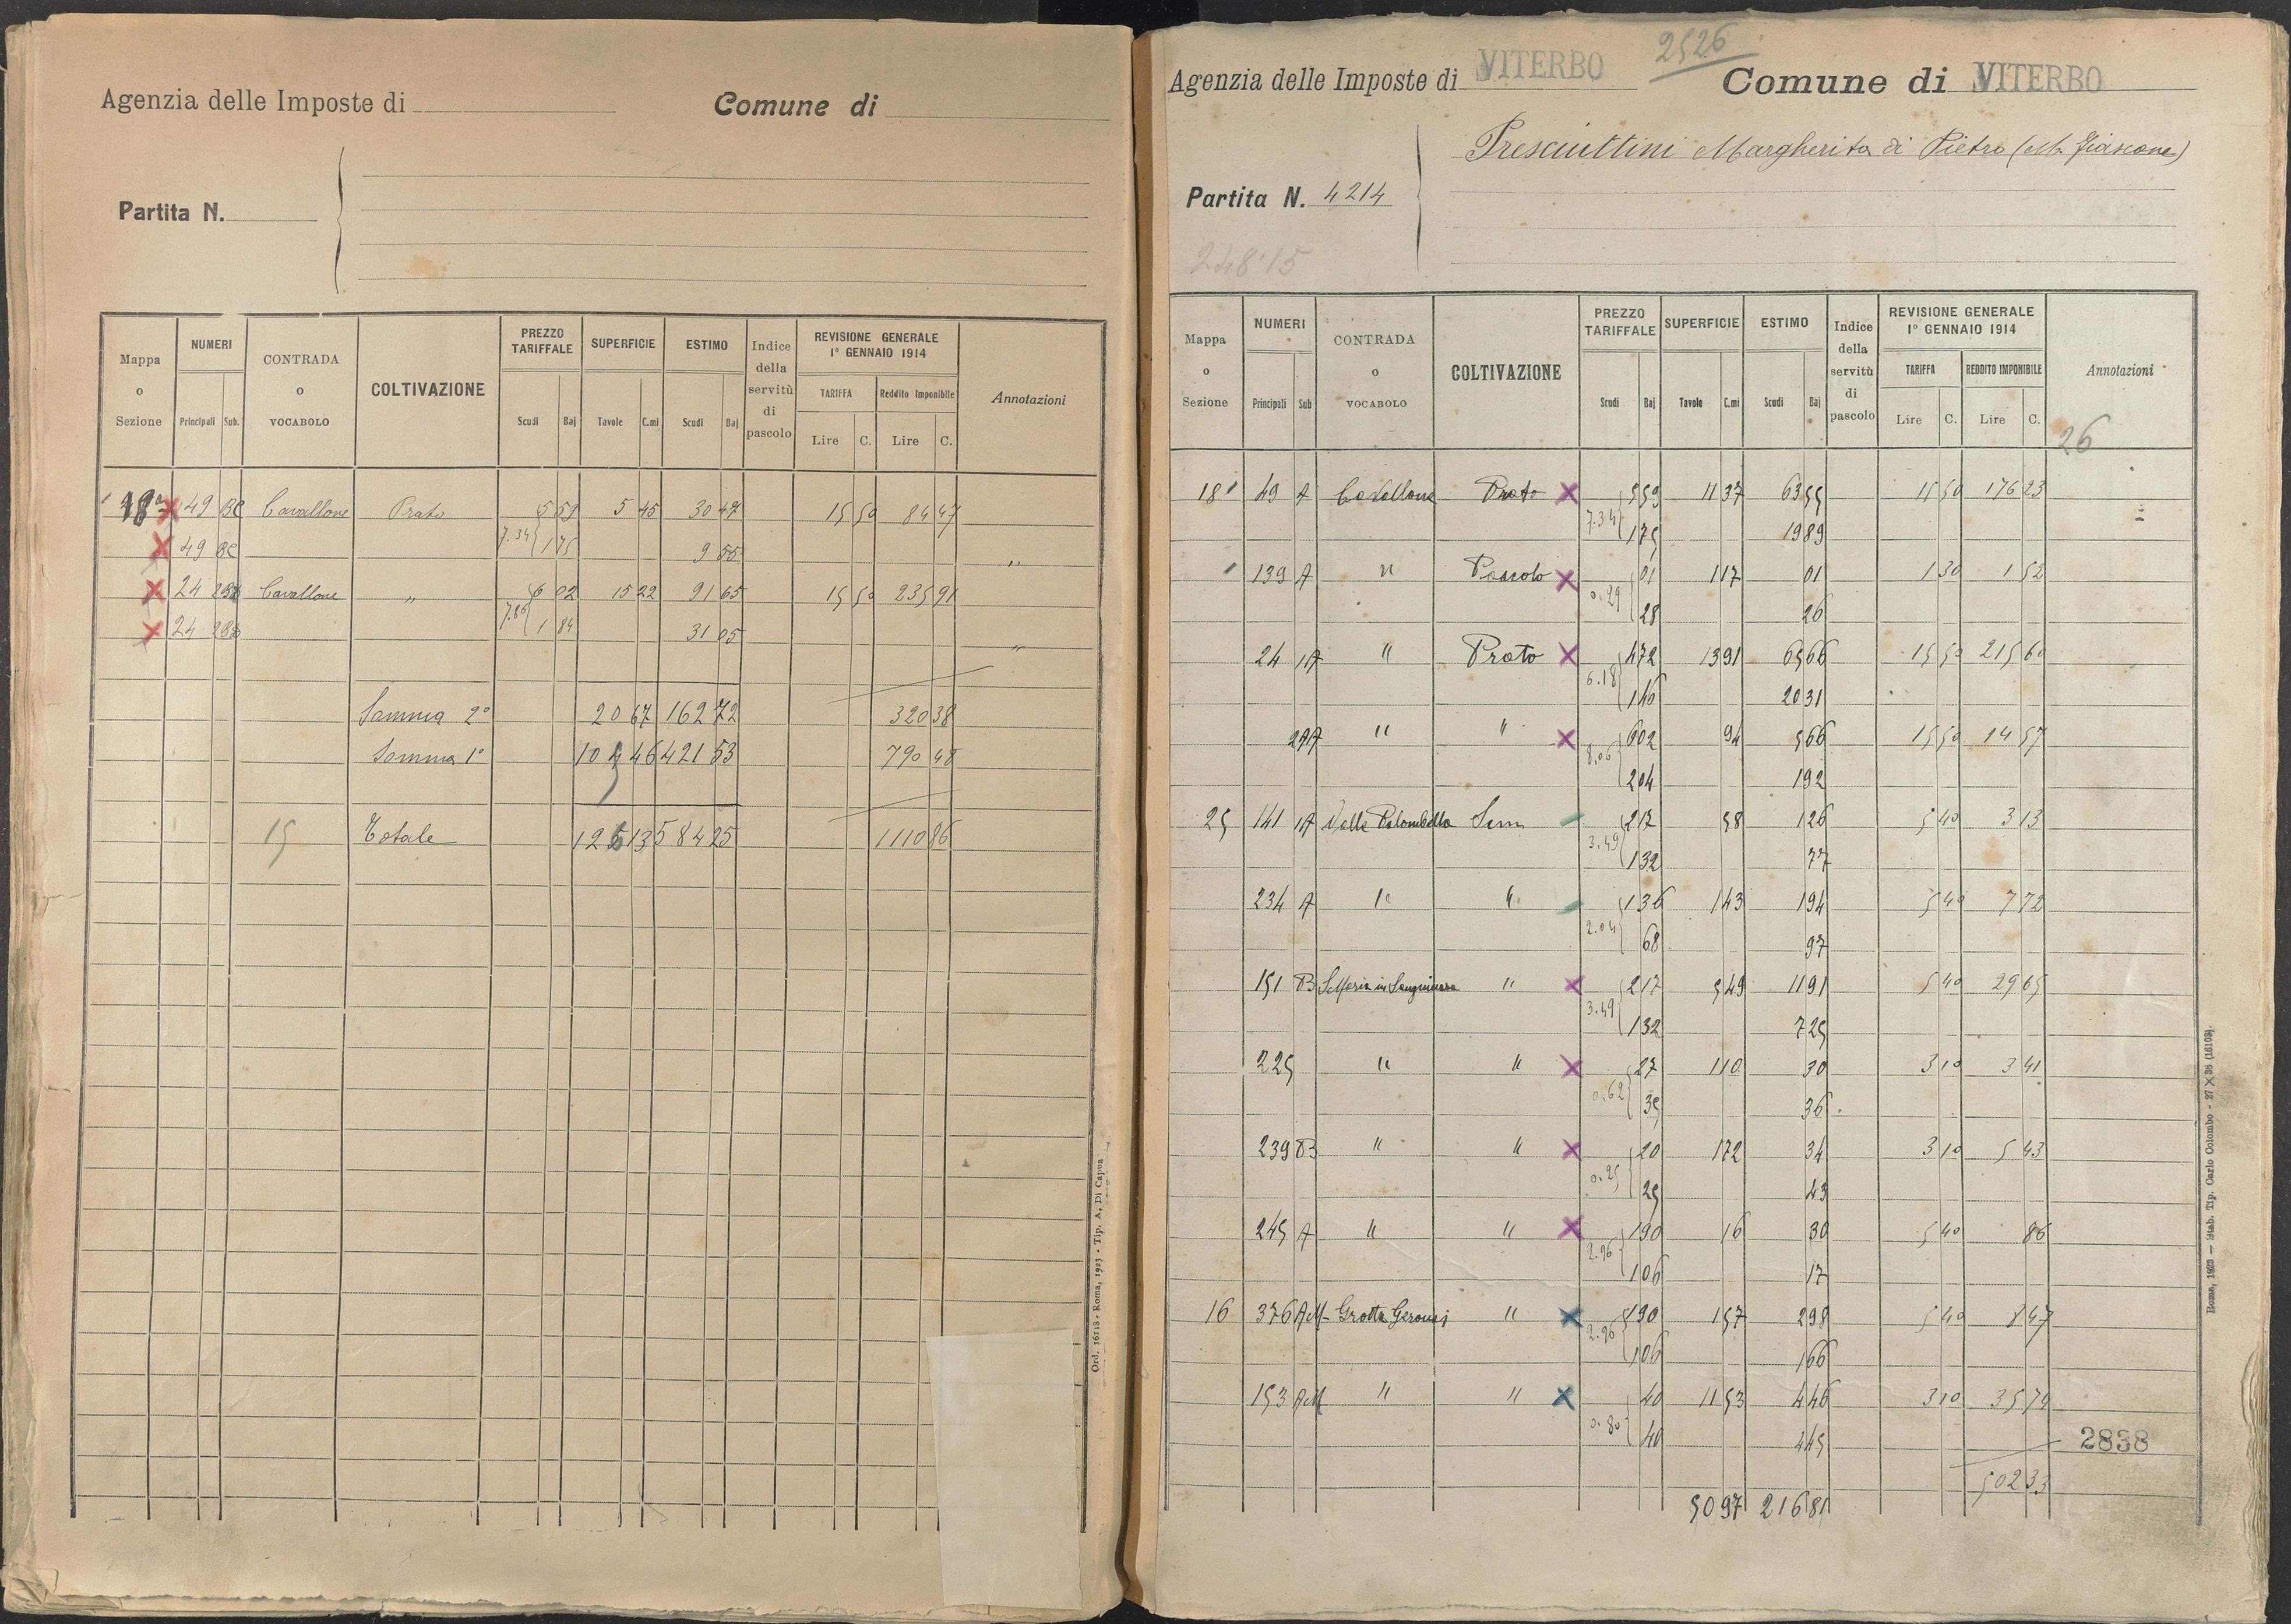 Agenzia delle Imposte di Comune di
Partita N.
Mappa o Sezione NUMERI Principali Sub. CONTRADA o VOCABOLO COLTIVAZIONE PREZZO TARIFFALE Scudi Baj SUPERFICIE Tavole C.mi ESTIMO Scudi Baj Indice della servitù di pascolo REVISIONE GENERALE 1° GENNAIO 1914 TARIFFA Lire C. Reddito Imponibile Lire C. Annotazioni
18 49 Cavallone Prato 5 59 5 45 30 47 15 50 84 47
49 7.34 1 75 9 55 "
24 Cavallone " 6 02 15 22 91 65 15 50 235 91
24 7.86 1 84 31 05 "
Somma 2° 20 67 162 72 320 38
Somma 1° 46 421 53 790 48
15 Totale 13 584 25 1110 86
Ord. 16118 - Roma, 1923 - Tip. A. Di Capua
Agenzia delle Imposte di VITERBO 2526 Comune di VITERBO
Presciuttini Margherita di Pietro (M. Fiascone)
Partita N. 4214
Mappa o Sezione NUMERI Principali Sub CONTRADA o VOCABOLO COLTIVAZIONE PREZZO TARIFFALE Scudi Baj SUPERFICIE Tavole C.mi ESTIMO Scudi Baj Indice della servitù di pascolo REVISIONE GENERALE 1° GENNAIO 1914 TARIFFA Lire C. REDDITO IMPONIBILE Lire C. Annotazioni
26
18 49 A Cavallone Prato 5 59 11 37 63 55 15 50 176 23
7.34 1 75 19 89
139 A " Pascolo 01 1 17 01 1 30 1 52
0.29 28 26
24 1A " Prato 4 72 13 91 65 66 15 50 215 60
6.18 1 46 20 31
2A " " 6 02 94 5 66 15 50 14 57
8.06 2 04 1 92
25 141 1A Valle Palombella Sem 2 17 58 1 26 5 40 3 13
3.49 1 32 77
234 A " " 1 36 1 43 1 94 5 40 7 72
2.04 68 97
151 B S. Maria in Sanguinara " 2 17 5 49 11 91 5 40 29 65
3.49 1 32 7 25
225 " " 27 1 10 30 3 10 3 41
0.62 35 36
239 B " " 20 1 72 34 3 10 5 43
25 43
245 A " " 1 90 16 30 5 40 86
2.96 1 06 17
16 376 AM Grotta " 1 90 1 57 2 98 5 40 8 47
2.96 1 06 1 66
153 AM " " 40 11 53 4 46 3 10 35 74
0.80 40 4 45
2838
502 33
50 97 216 81
Roma, 1923 — Stab. Tip. Carlo Colombo - 27 × 38 (16103).